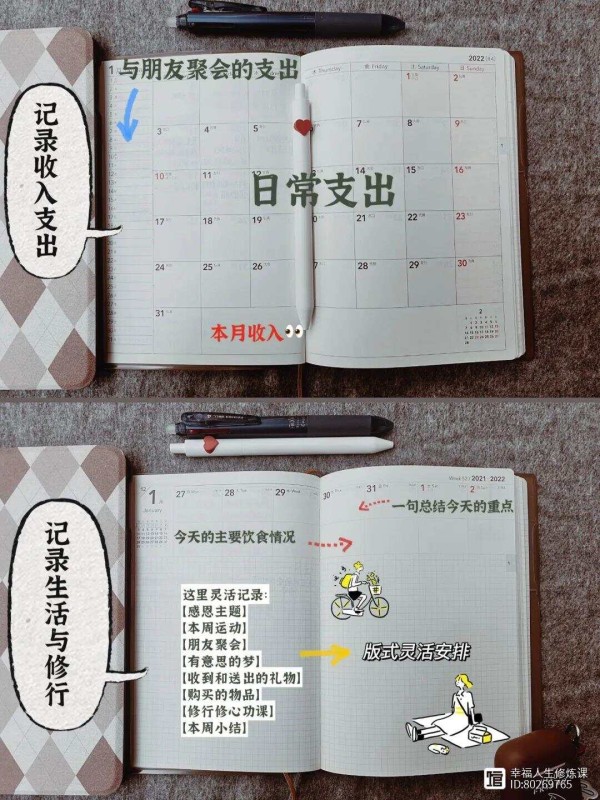 2022
1
与朋友聚会的支出
Thursday
Friday
Saturday
Sunday
1
2
3
4
5
7
8
9
10
11
12
14
15
16
记录收入支出
日常支出
17
18
19
21
22
23
24
25
26
28
29
30
31
本月收入
2
2021 - 2022
1
January
27
28
29
30
31
1
2
一句总结今天的重点
今天的主要饮食情况
记录生活与修行
这里灵活记录:
【感恩主题】
【本周运动】
【朋友聚会】
【有意思的梦】
【收到和送出的礼物】
【购买的物品】
【修行修心功课】
【本周小结】
版式灵活安排
幸福人生修炼课
ID:80269765